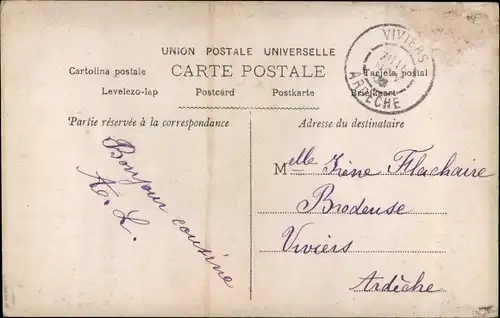 UNION POSTALE UNIVERSELLE
Cartolina postale CARTE POSTALE Tarjeta postal
Levelezo-lap Postcard Postkarte Briefkaart
VIVIERS
ARDÈCHE
Partie réservée à la correspondance
Adresse du destinataire
Bonjour cousine
A. L.
Melle Irène Flachaire
Brodeuse
Viviers
Ardèche